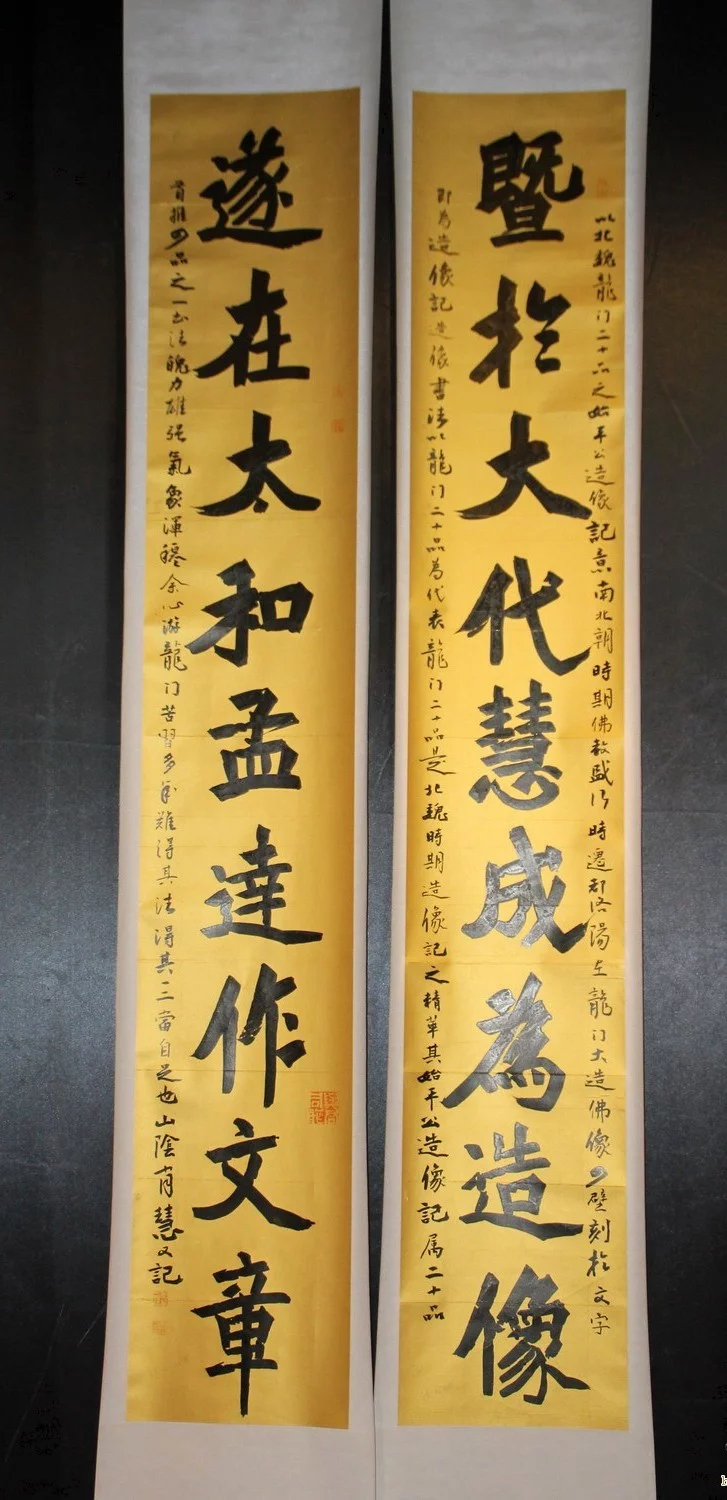 暨於大代慧成為造像
以北魏龍门二十品之始平公造像記意南北朝時期佛教盛行時遷都洛陽在龍门大造佛像多壁刻於文字
即為造像記造像書法以龍门二十品為代表龍门二十品是北魏時期造像記之精華其始平公造像記属二十品
遂在太和孟達作文章
首推四品之一書法魄力雄强氣象渾穆余心游龍门苦習多年難得其法得其二三當自足也山陰肖慧又記